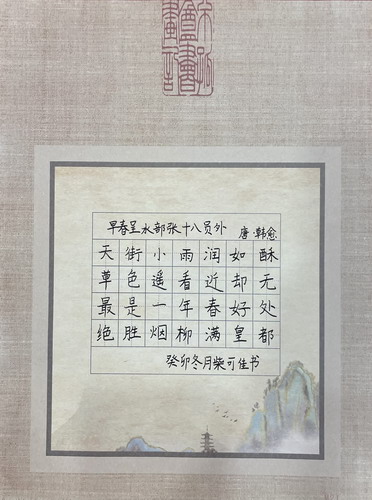 早春呈水部张十八员外 唐·韩愈
天街小雨润如酥
草色遥看近却无
最是一年春好处
绝胜烟柳满皇都
癸卯冬月柴可佳书